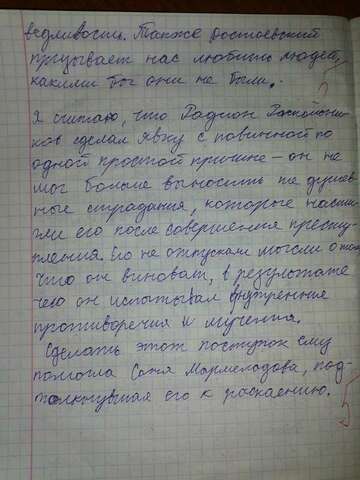 ведливость. Также Достоевский
призывает нас любить людей,
какими бы они не были.
Я считаю, что Радион Раскольни-
ков сделал явку с повинной по
одной простой причине – он не
мог больше выносить те душев-
ные страдания, которые насти-
гли его после совершения престу-
пления. Его не отпускали мысли о том,
что он виноват, в результате
чего он испытывал внутренние
противоречия и мучения.
Сделать этот поступок ему
помогла Соня Мармеладова, под-
толкнувшая его к раскаению.
5